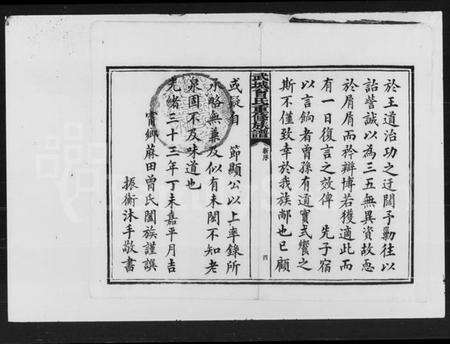 於王道治功之迂闊予勦往以
詒訾誠以為三五無異資故恧
於膺膺而矜辯博若獲適此而
有一日復言之效俾 先子宿
以言餉者曾孫有逋實式饗之
斯不僅致幸於我族邮也已顧
武城曾氏重修族譜
新序
四
或疑自 節顯公以上率錄所
承略無兼及似有未閡不知老
泉固不及味道也
光緒三十三年丁未嘉平月吉
霄鄉蔴田曾氏闔族謹譔
振衛沐手敬書